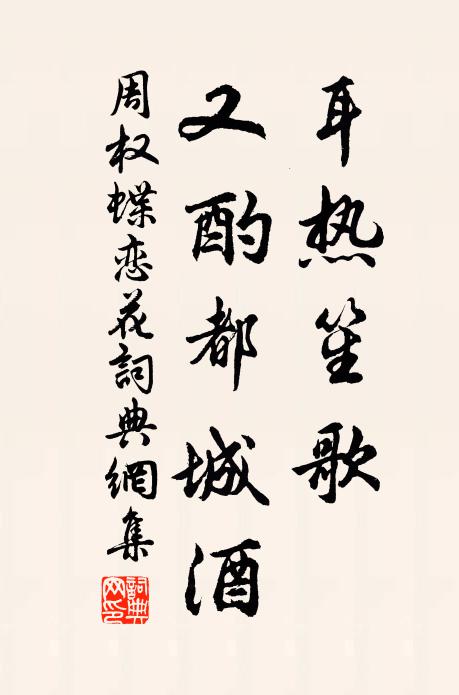 耳热笙歌
又酌都城酒
周权蝶恋花詞典網集
詞典
网印